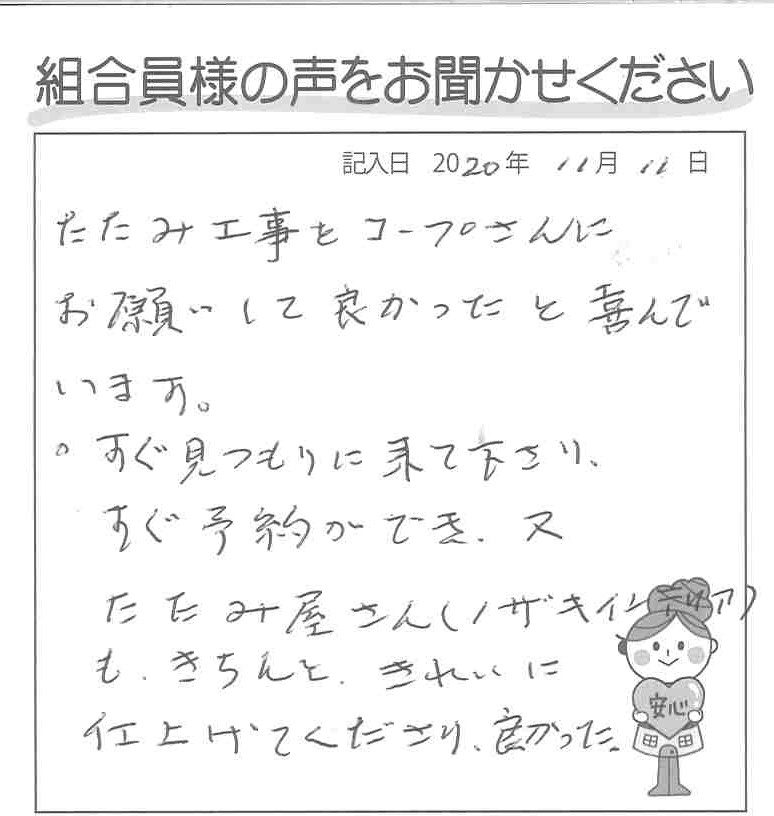 組合員様の声をお聞かせください
記入日 2020年 11月 11日
たたみ工事をコープさんに
お願いして良かったと喜んで
います。
。すぐ見つもりに来て下さり、
すぐ予約ができ、又
たたみ屋さん(ノザキインテリア)
も、きちんと、きれいに
仕上げてくださり、良かった。
安心